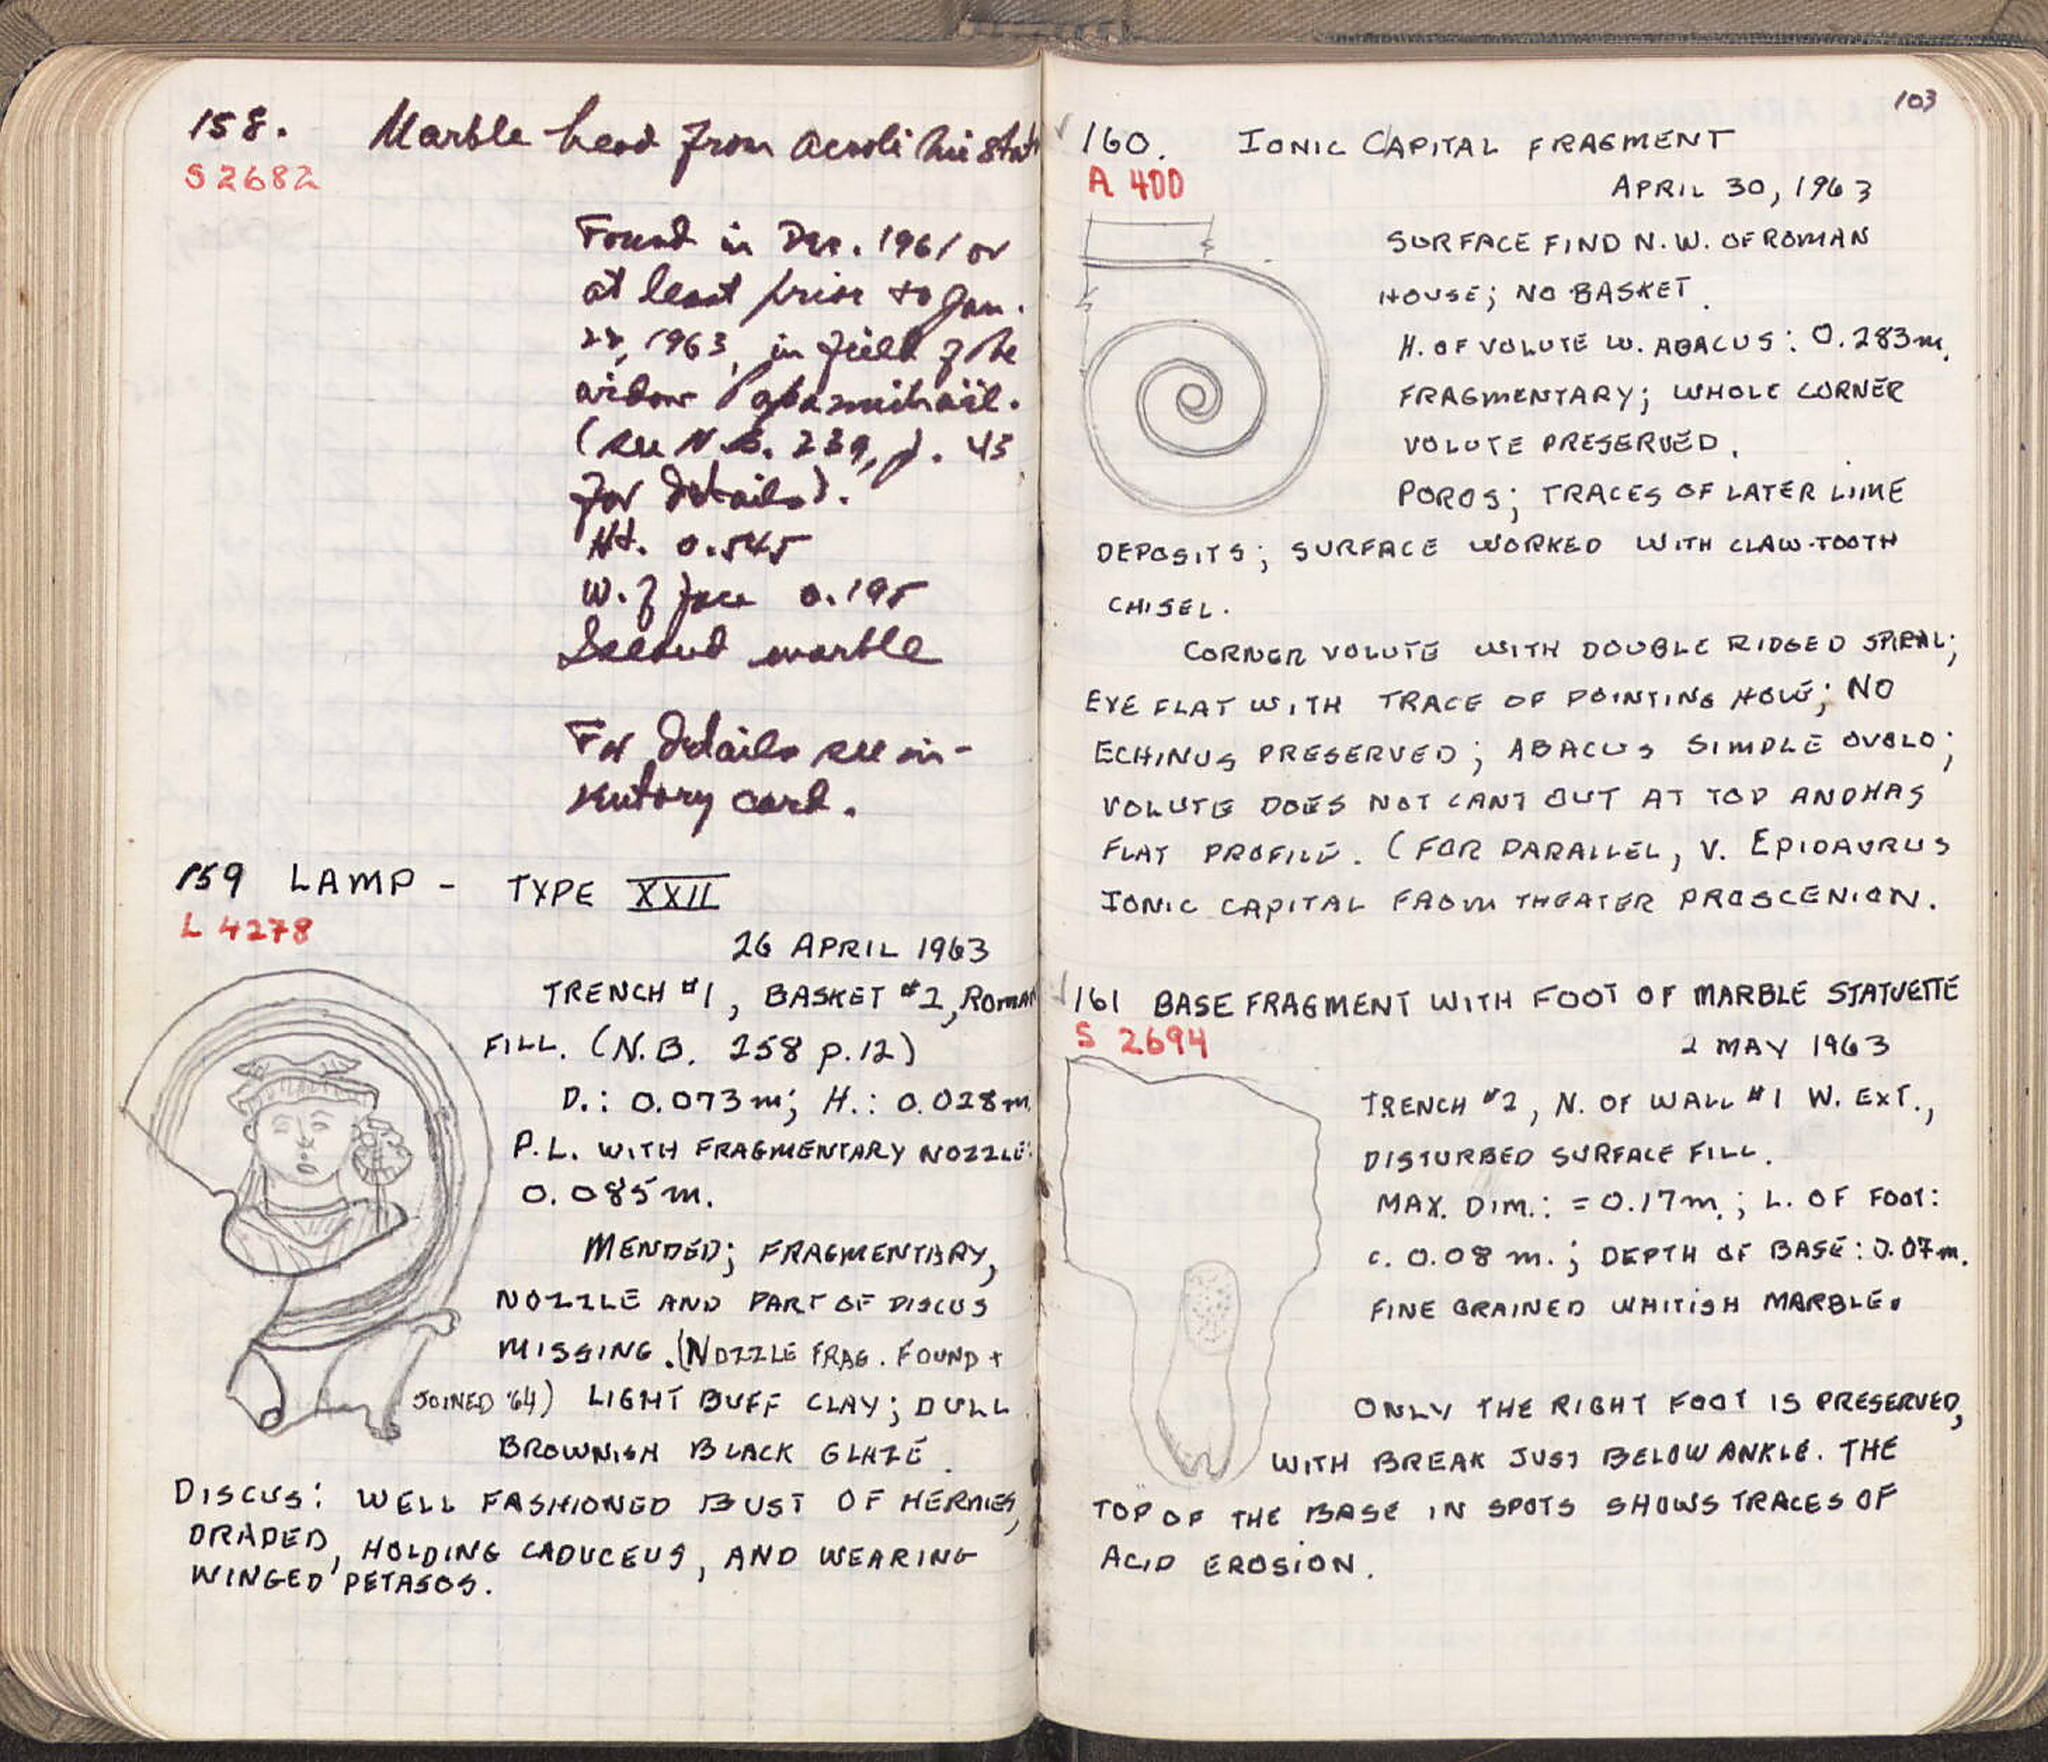 158. Marble head from acrolithic stat
S 2682
Found in Dec. 1961 or
at least prior to Jan.
22, 1963, in field of the
widow Papamichaïl.
(see N.B. 239, p. 43
for details).
Ht. 0.545
W. of face 0.195
Second marble
For details see in-
ventory card.
159 LAMP - TYPE XXII
L 4278
26 APRIL 1963
TRENCH #1, BASKET #2, ROMAN
FILL. (N.B. 258 P.12)
D.: 0.073m; H.: 0.028m.
P.L. WITH FRAGMENTARY NOZZLE:
0.085m.
MENDED; FRAGMENTARY,
NOZZLE AND PART OF DISCUS
MISSING. (NOZZLE FRAG. FOUND +
JOINED '64) LIGHT BUFF CLAY; DULL
BROWNISH BLACK GLAZE.
DISCUS: WELL FASHIONED BUST OF HERMES,
DRAPED, HOLDING CADUCEUS, AND WEARING
WINGED PETASOS.
103
160. IONIC CAPITAL FRAGMENT
A 400
APRIL 30, 1963
SURFACE FIND N.W. OF ROMAN
HOUSE; NO BASKET.
H. OF VOLUTE W. ABACUS: 0.283m.
FRAGMENTARY; WHOLE CORNER
VOLUTE PRESERVED.
POROS; TRACES OF LATER LIME
DEPOSITS; SURFACE WORKED WITH CLAW-TOOTH
CHISEL.
CORNER VOLUTE WITH DOUBLE RIDGED SPIRAL;
EYE FLAT WITH TRACE OF POINTING HOLE; NO
ECHINUS PRESERVED; ABACUS SIMPLE OVOLO;
VOLUTE DOES NOT CANT OUT AT TOP AND HAS
FLAT PROFILE. (FOR PARALLEL, V. EPIDAURUS
IONIC CAPITAL FROM THEATER PROSCENION.
161 BASE FRAGMENT WITH FOOT OF MARBLE STATUETTE
S 2694
2 MAY 1963
TRENCH #2, N. OF WALL #1 W. EXT.,
DISTURBED SURFACE FILL.
MAX. DIM.: = 0.17m.; L. OF FOOT:
c. 0.08 m.; DEPTH OF BASE: 0.07m.
FINE GRAINED WHITISH MARBLE.
ONLY THE RIGHT FOOT IS PRESERVED,
WITH BREAK JUST BELOW ANKLE. THE
TOP OF THE BASE IN SPOTS SHOWS TRACES OF
ACID EROSION.